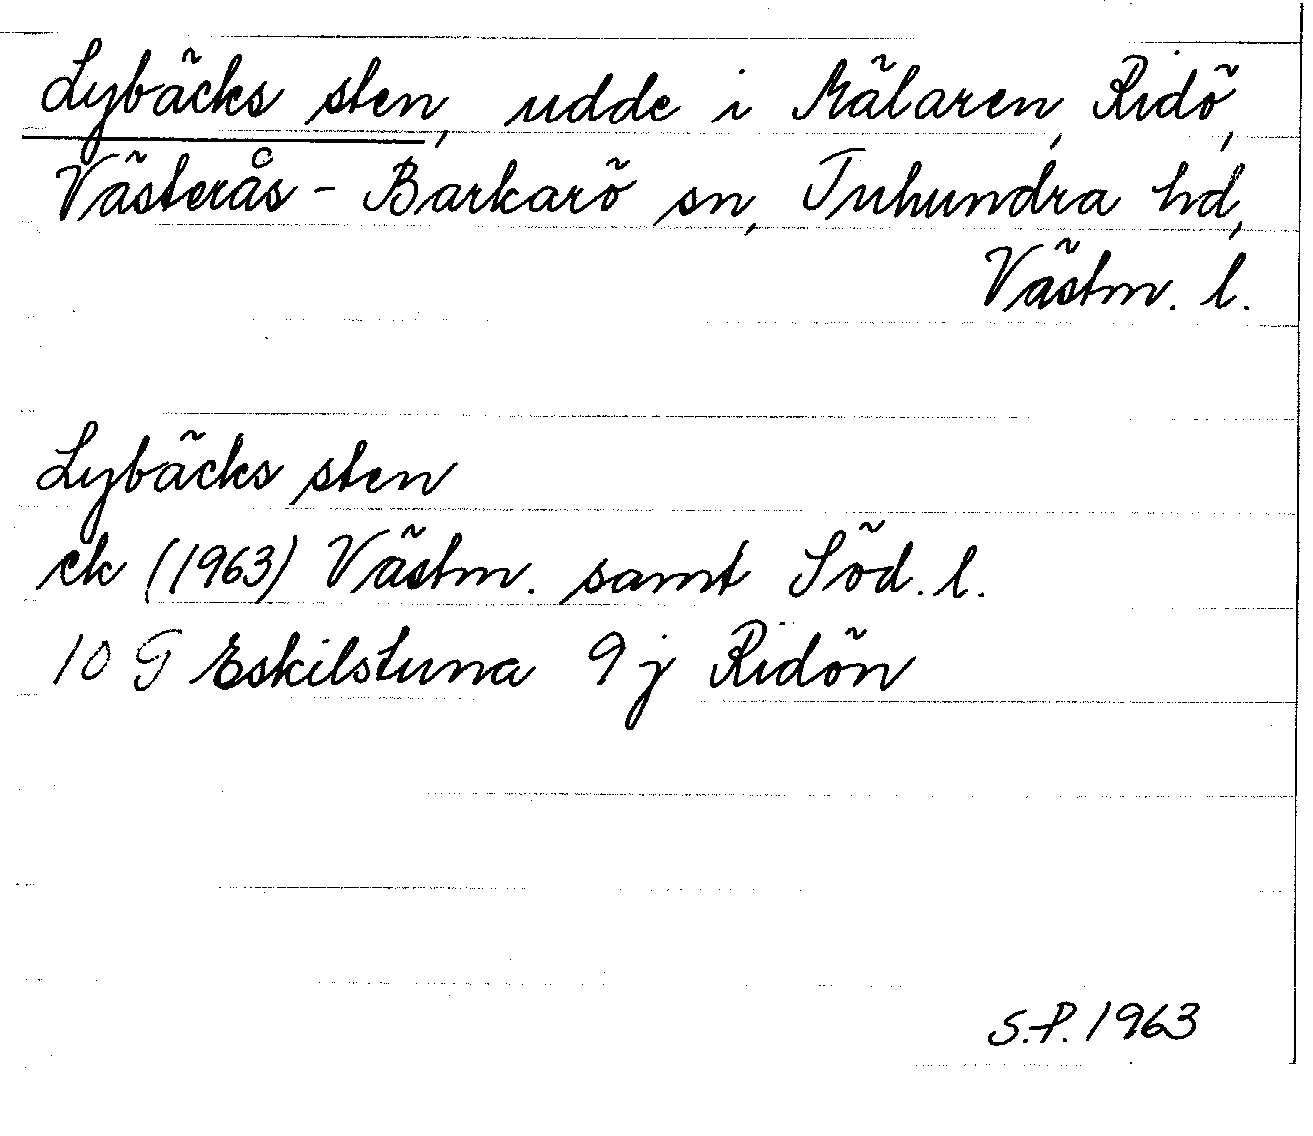 Lybäcks sten, udde i Mälaren, Ridö,
Västerås - Barkarö sn, Tuhundra hd,
Västm. l.
Lybäcks sten
ek (1963) Västm. samt Söd. l.
10 G Eskilstuna 9 j Ridön
S.P. 1963